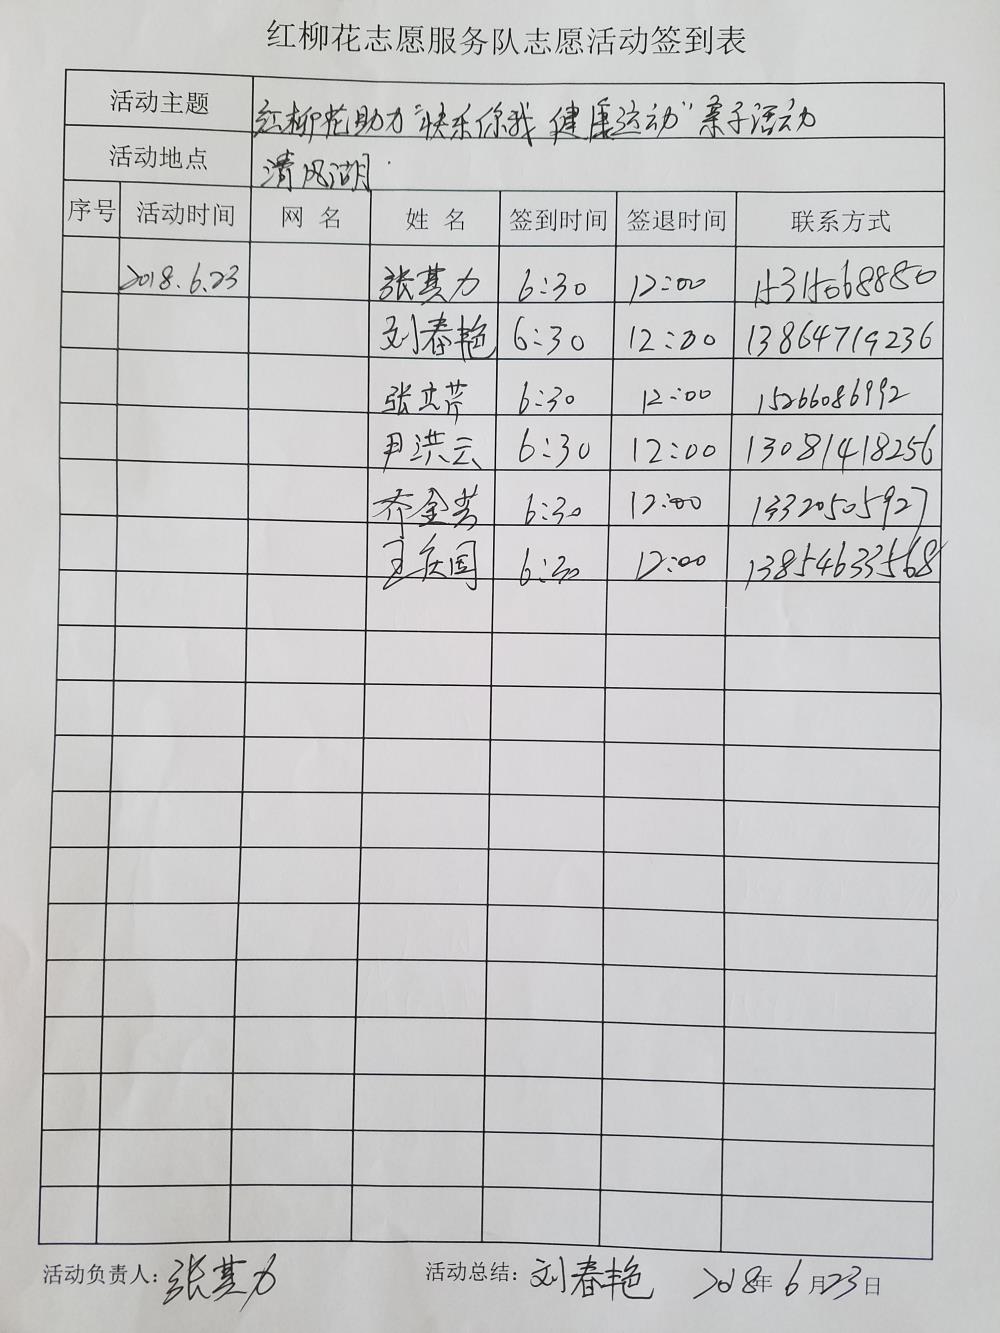 红柳花志愿服务队志愿活动签到表
活动主题 红柳花助力"快乐你我 健康运动"亲子活动
活动地点 清风湖
序号 活动时间 网名 姓名 签到时间 签退时间 联系方式
2018.6.23 张其力 6:30 12:00 15315068880
刘春艳 6:30 12:00 13864719236
张立芹 6:30 12:00 15266086992
尹洪云 6:30 12:00 13081418256
齐金芳 6:30 12:00 13320505927
王庆国 6:30 12:00 13854633568
活动负责人:张其力 活动总结:刘春艳 2018年6月23日